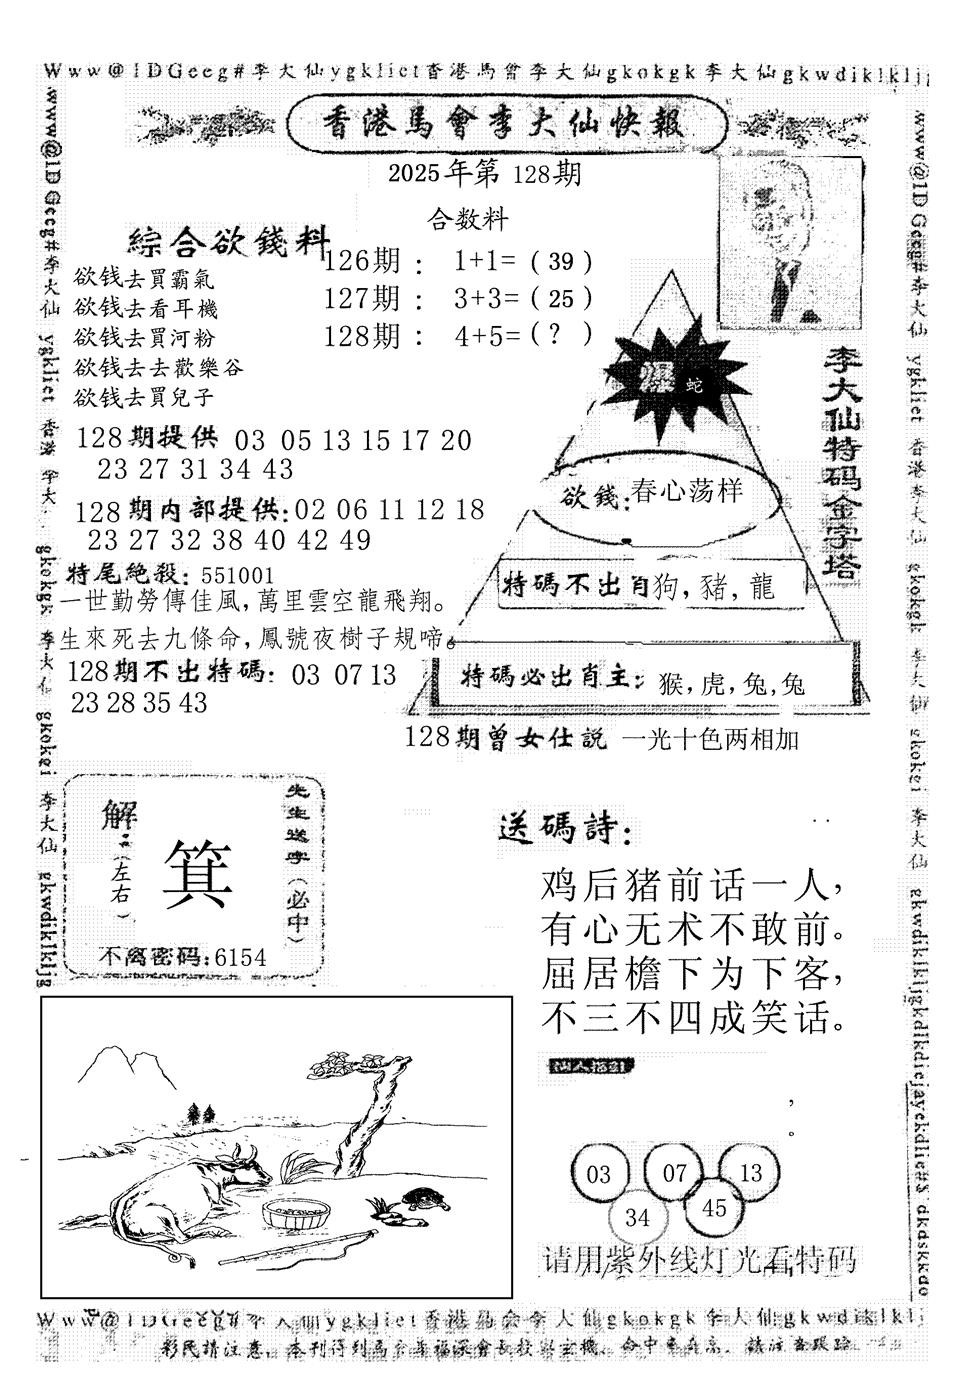 Www@1DGeeg#李大仙ygkliet香港馬會李大仙gkokgk李大仙gkwdiklkljg
香港馬會李大仙快報
2025年第 128期
合数料
綜合欲錢料
126期： 1+1=（39）
127期： 3+3=（25）
128期： 4+5=（?）
欲钱去買霸氣
欲钱去看耳機
欲钱去買河粉
欲钱去去歡樂谷
欲钱去買兒子
128期提供 03 05 13 15 17 20
23 27 31 34 43
128期内部提供:02 06 11 12 18
23 27 32 38 40 42 49
特尾絶殺: 551001
一世勤勞傳佳風,萬里雲空龍飛翔。
生來死去九條命,鳳號夜樹子規啼。
128期不出特碼: 03 07 13
23 28 35 43
李大仙特码金字塔
爆 蛇
欲錢:春心荡样
特碼不出肖狗,豬,龍
特碼必出肖主: 猴,虎,兔,兔
128期曾女仕説 一光十色两相加
解:(左右)
箕
先生送字(必中)
不离密码:6154
送碼詩:
鸡后猪前话一人,
有心无术不敢前。
屈居檐下为下客,
不三不四成笑话。
,
。
03 07 13
34 45
请用紫外线灯光看特码
Www@1DGeeg#李大仙ygkliet香港馬会李大仙gkokgk李大仙gkwdiklklj